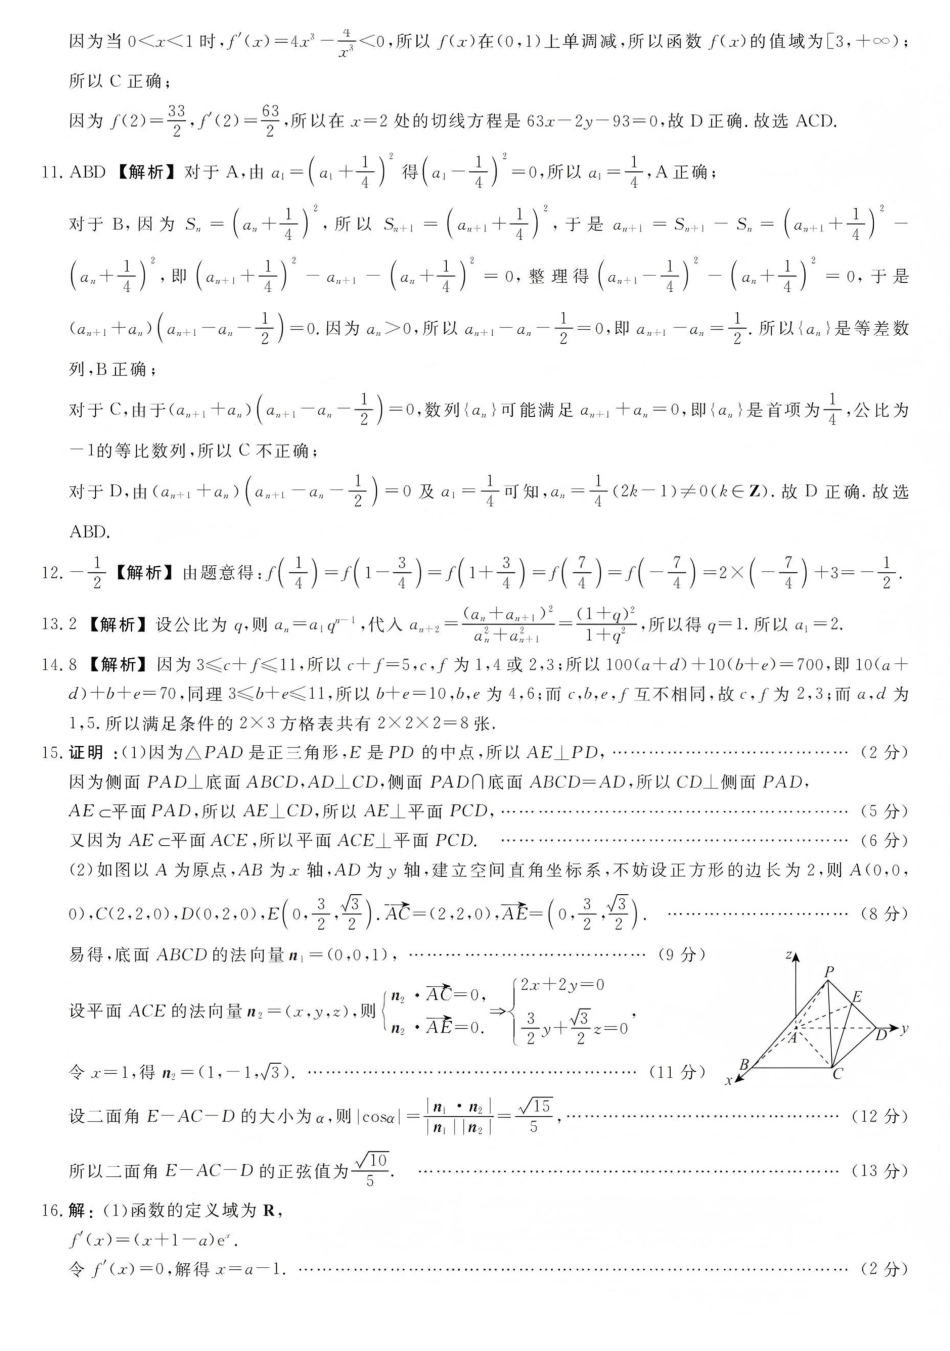 因为当 0<x<1 时,f′(x)=4x³-4/x³<0,所以 f(x)在(0,1)上单调减,所以函数 f(x)的值域为[3,+∞);
所以 C 正确;
因为 f(2)=33/2,f′(2)=63/2,所以在 x=2 处的切线方程是 63x-2y-93=0,故 D 正确.故选 ACD.
11. ABD 【解析】对于 A,由 a₁=(a₁+1/4)²得(a₁-1/4)²=0,所以 a₁=1/4,A 正确;
对于 B,因为 Sₙ=(aₙ+1/4)²,所以 Sₙ₊₁=(aₙ₊₁+1/4)²,于是 aₙ₊₁=Sₙ₊₁-Sₙ=(aₙ₊₁+1/4)²-
(aₙ+1/4)²,即(aₙ₊₁+1/4)²-aₙ₊₁-(aₙ+1/4)²=0,整理得(aₙ₊₁-1/4)²-(aₙ+1/4)²=0,于是
(aₙ₊₁+aₙ)(aₙ₊₁-aₙ-1/2)=0.因为 aₙ>0,所以 aₙ₊₁-aₙ-1/2=0,即 aₙ₊₁-aₙ=1/2.所以{aₙ}是等差数
列,B 正确;
对于 C,由于(aₙ₊₁+aₙ)(aₙ₊₁-aₙ-1/2)=0,数列{aₙ}可能满足 aₙ₊₁+aₙ=0,即{aₙ}是首项为1/4,公比为
-1的等比数列,所以 C 不正确;
对于 D,由(aₙ₊₁+aₙ)(aₙ₊₁-aₙ-1/2)=0 及 a₁=1/4可知,aₙ=1/4(2k-1)≠0(k∈Z).故 D 正确.故选
ABD.
12. -1/2【解析】由题意得:f(1/4)=f(1-3/4)=f(1+3/4)=f(7/4)=f(-7/4)=2×(-7/4)+3=-1/2.
13. 2 【解析】设公比为 q,则 aₙ=a₁qⁿ⁻¹,代入 aₙ₊₂=(aₙ+aₙ₊₁)²/(aₙ²+aₙ₊₁²)=(1+q)²/(1+q²),所以得 q=1.所以 a₁=2.
14. 8 【解析】因为 3≤c+f≤11,所以 c+f=5,c,f 为 1,4 或 2,3;所以 100(a+d)+10(b+e)=700,即 10(a+
d)+b+e=70,同理 3≤b+e≤11,所以 b+e=10,b,e 为 4,6;而 c,b,e,f 互不相同,故 c,f 为 2,3;而 a,d 为
1,5.所以满足条件的 2×3 方格表共有 2×2×2=8 张.
15. 证明:(1)因为△PAD 是正三角形,E 是 PD 的中点,所以 AE⊥PD,……………………………………(2 分)
因为侧面 PAD⊥底面 ABCD,AD⊥CD,侧面 PAD∩底面 ABCD=AD,所以 CD⊥侧面 PAD,
AE⊂平面 PAD,所以 AE⊥CD,所以 AE⊥平面 PCD,……………………………………(5 分)
又因为 AE⊂平面 ACE,所以平面 ACE⊥平面 PCD. ……………………………………(6 分)
(2)如图以 A 为原点,AB 为 x 轴,AD 为 y 轴,建立空间直角坐标系,不妨设正方形的边长为 2,则 A(0,0,
0),C(2,2,0),D(0,2,0),E(0,3/2,√3/2).AC→=(2,2,0),AE→=(0,3/2,√3/2). …………………………(8 分)
易得,底面 ABCD 的法向量 n₁=(0,0,1),……………………………………(9 分)
设平面 ACE 的法向量 n₂=(x,y,z),则{n₂·AC→=0, n₂·AE→=0.⇒{2x+2y=0 3/2y+√3/2z=0,
令 x=1,得 n₂=(1,-1,√3). ……………………………………(11 分)
z
P
E
A
D
y
B
x
C
设二面角 E-AC-D 的大小为 α,则|cosα|=|n₁·n₂|/|n₁||n₂|=√15/5,……………………………………(12 分)
所以二面角 E-AC-D 的正弦值为√10/5. ……………………………………(13 分)
16. 解:(1)函数的定义域为 R,
f′(x)=(x+1-a)eˣ.
令 f′(x)=0,解得 x=a-1. ……………………………………(2 分)